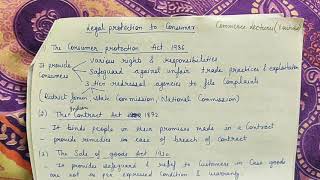 Legal protection to Consumer
Commerce lectures (
The Consumer protection Act 1986
It provide consumers
Various rights & responsibilities
Safeguard against unfair trade practices & exploitation
3 tier redressal agencies to file Complaints
(District forum, state Commission, National Commission)
Indian
(2) The Contract Act 1872
It binds people on their promises made in a Contract
provide remedies in case of breach of contract
(3) The Sale of goods Act 1930
is provides safeguard & relief to Customers in Case goods
are not as per expressed Condition & warranty.